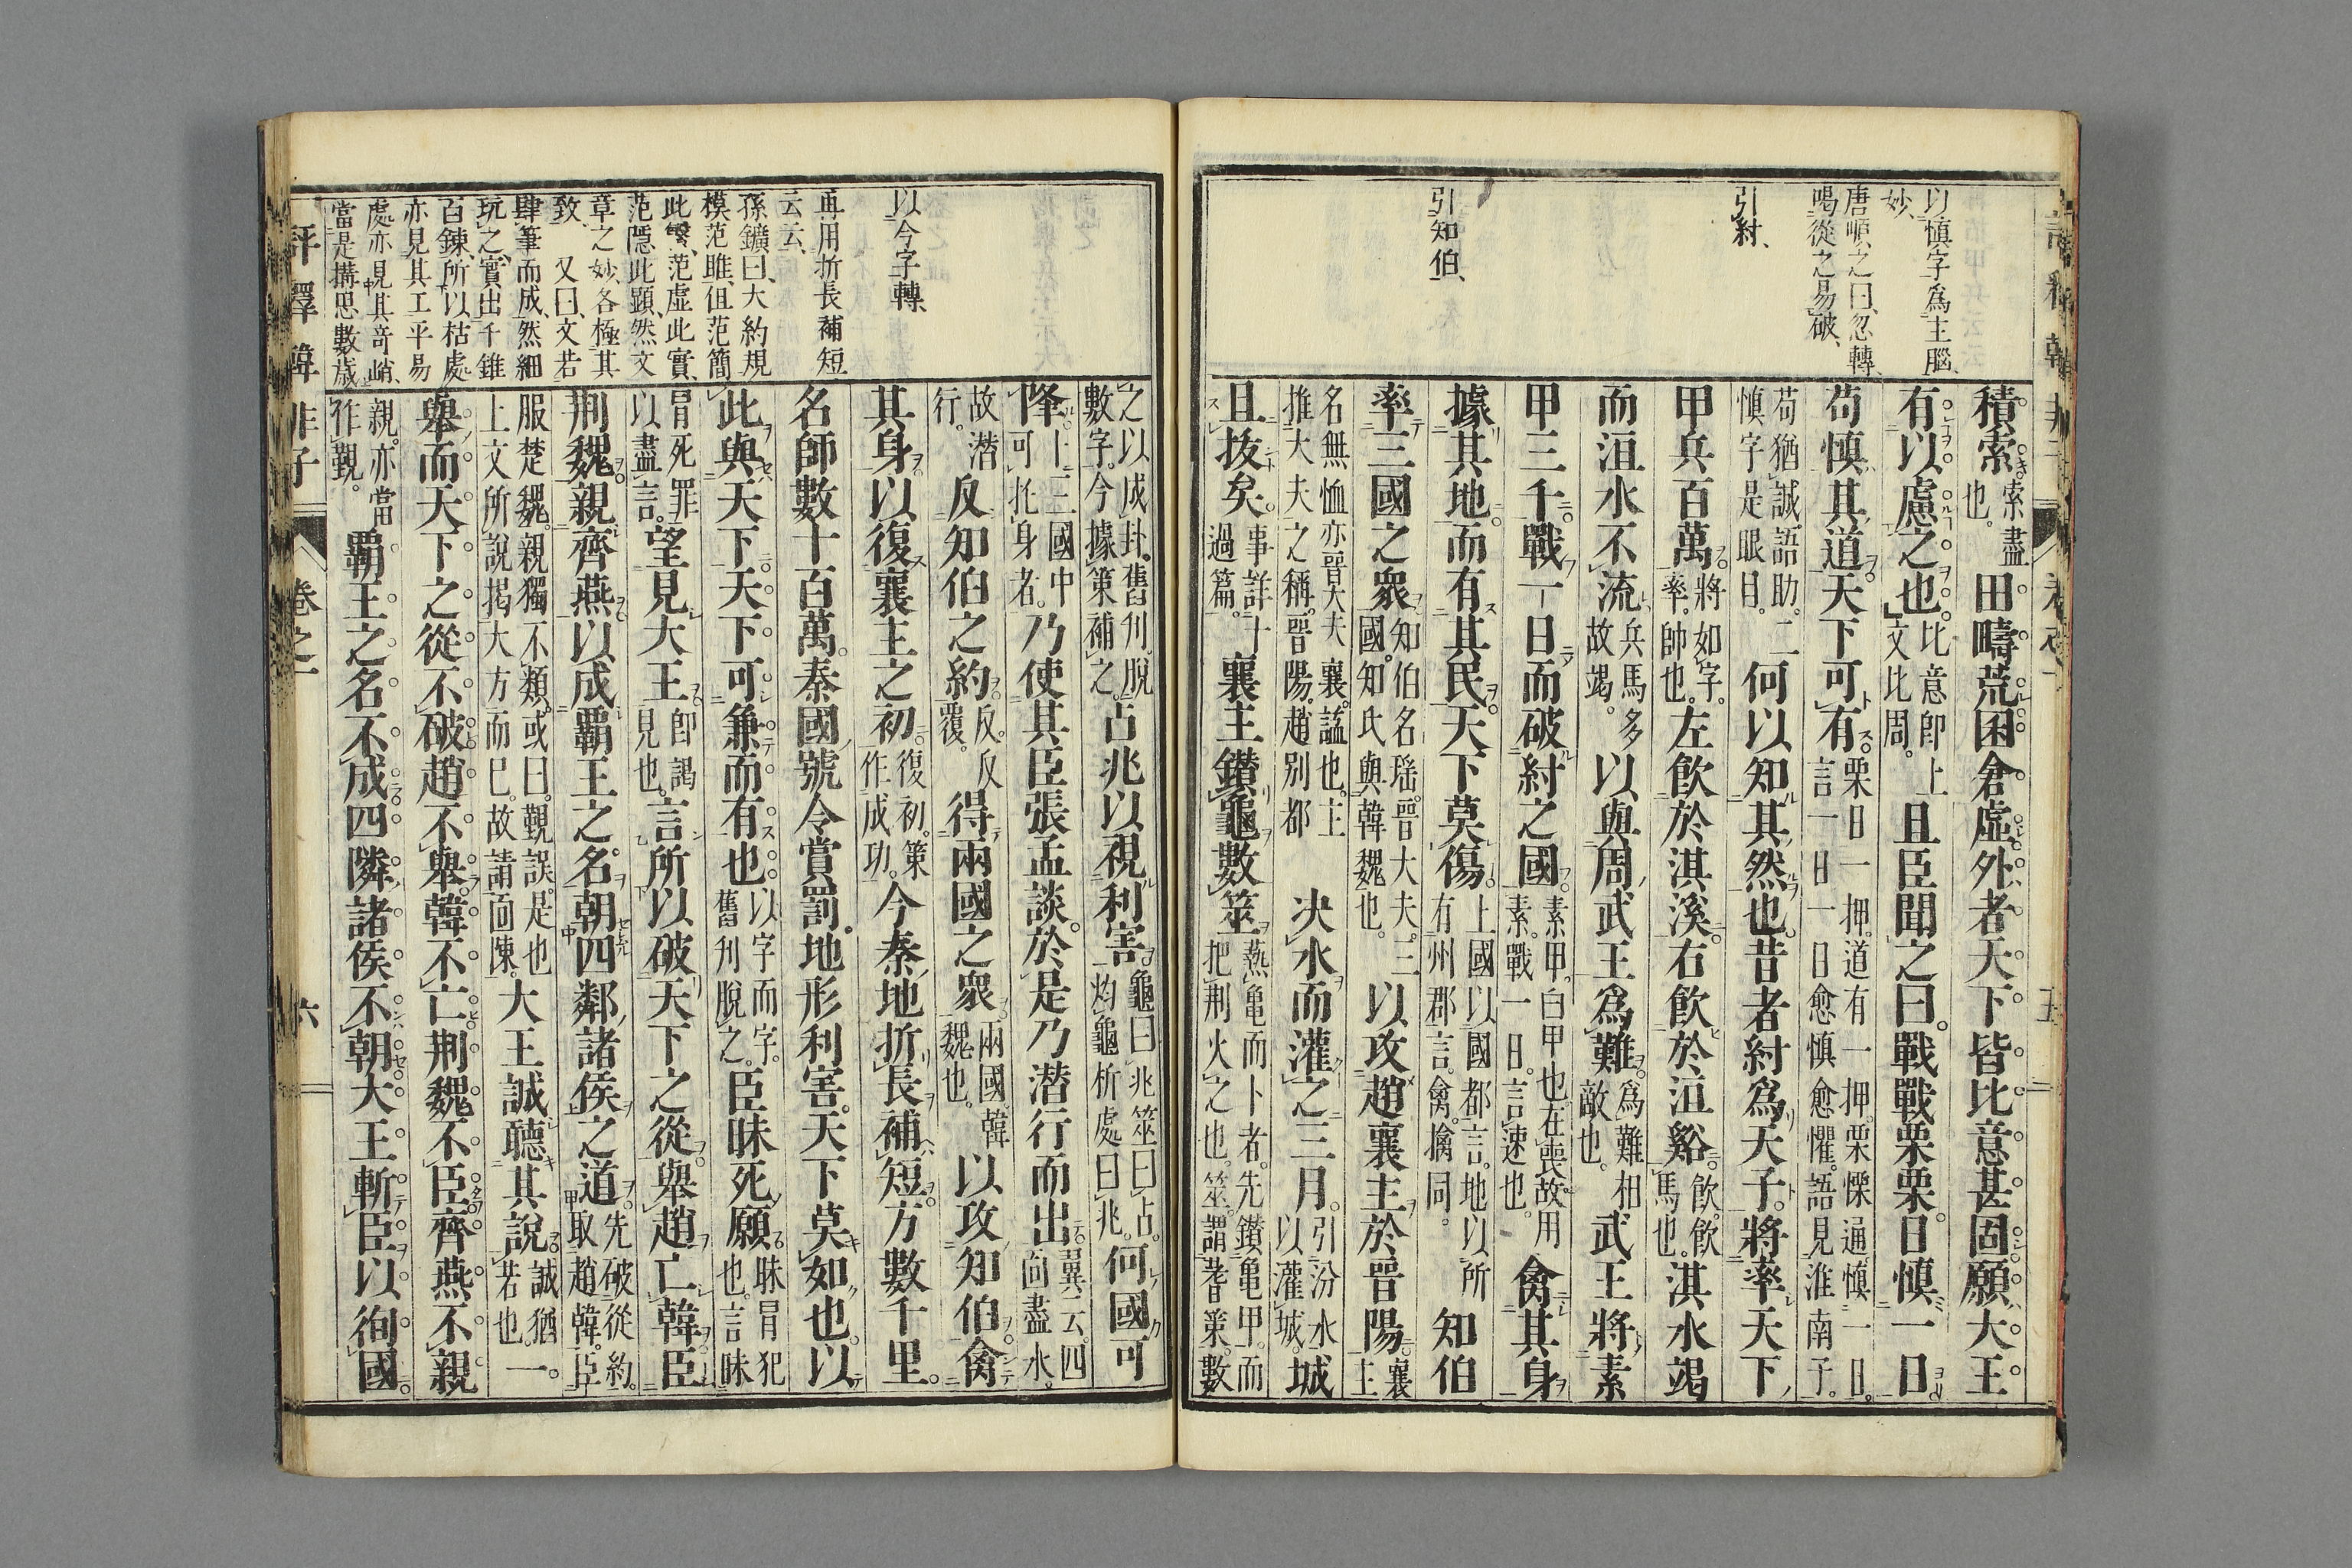 以愼字爲主腦、
妙、
唐順之曰、忽轉、
喝從之易破、
引紂、
引知伯、
積索索盡也。田疇荒囷倉虛外者天下皆比意甚固願大王
有以慮之也比意卽上文比周。且臣聞之曰。戰戰栗栗。日愼一日
苟愼其道天下可有栗日一押。道有一押。栗慄通愼一日。言一日一日愈愼愈懼。語見淮南子。
苟猶誠語助。二愼字是眼目。何以知其然也。昔者紂爲天子。將率天下
甲兵百萬將如字。率。帥也。左飮於淇溪。右飮於洹谿。飮。飮馬也。淇水竭
而洹水不流兵馬多故竭。以與周武王爲難。爲難相敵也。武王將素
甲三千。戰一日而破紂之國素甲。白甲也在喪故用素。戰一日。言速也。禽其身
據其地。而有其民。天下莫傷上國以國都言。地以所有州郡言。禽。擒同。知伯
率三國之衆知伯名瑤。晉大夫。三國。知氏與韓魏也。以攻趙襄主於晉陽。襄主
名無恤亦晉大夫襄。謚也。主推大夫之稱。晉陽。趙別都決水而灌之三月。引汾水以灌城。城
且拔矣。事詳十過篇。襄主鑽龜數筮爇龜而卜者。先鑽龜甲。而把荆火之也。筮。謂蓍策數
以今字轉、
再用折長補短
云云、
孫鑛曰、大約規
模范雎、但范簡
此繁、范虛此實、
范隱此顯、然文
章之妙、各極其
致、又曰、文若
肆筆而成、然細
玩之、實出千錐
百鍊、所以枯處
亦見其工平易
處亦見其奇峭、
當是搆思數歲
之以成卦。舊刋。脫數字。今據策補之。占兆以視利害。龜曰兆筮曰占。灼龜析處曰兆。何國可
降上三國中可托身者。乃使其臣張孟談。於是乃潜行而出。翼云。四面盡水。
故潜行。反知伯之約反。反覆。得兩國之衆。兩國。韓魏也。以攻知伯禽
其身以復襄主之初。復初。策作成功。今秦地折長補短方數千里。
名師數十百萬。秦國號令賞罰。地形利害。天下莫如也。以
此與天下。天下可兼而有也以字而字。舊刋脫之。臣昧死願昧冒犯也。言昧
冒死罪以盡言。望見大王卽謁見也。言所以破天下之從舉趙亡韓臣
荆魏親齊燕以成霸王之名。朝四鄰諸侯之道先破從約。取趙韓。臣
服楚魏。親獨不類。或曰。覲誤。是也上文所說揭大方而巳。故請面陳。大王誠聽其說誠猶若也。一。
舉而天下之從不破趙不舉。韓不亡荆魏不臣齊燕不親
親。亦當作覲。霸王之名不成四隣諸侯不朝大王斬臣以徇國
評釋韓非子
卷之一
六